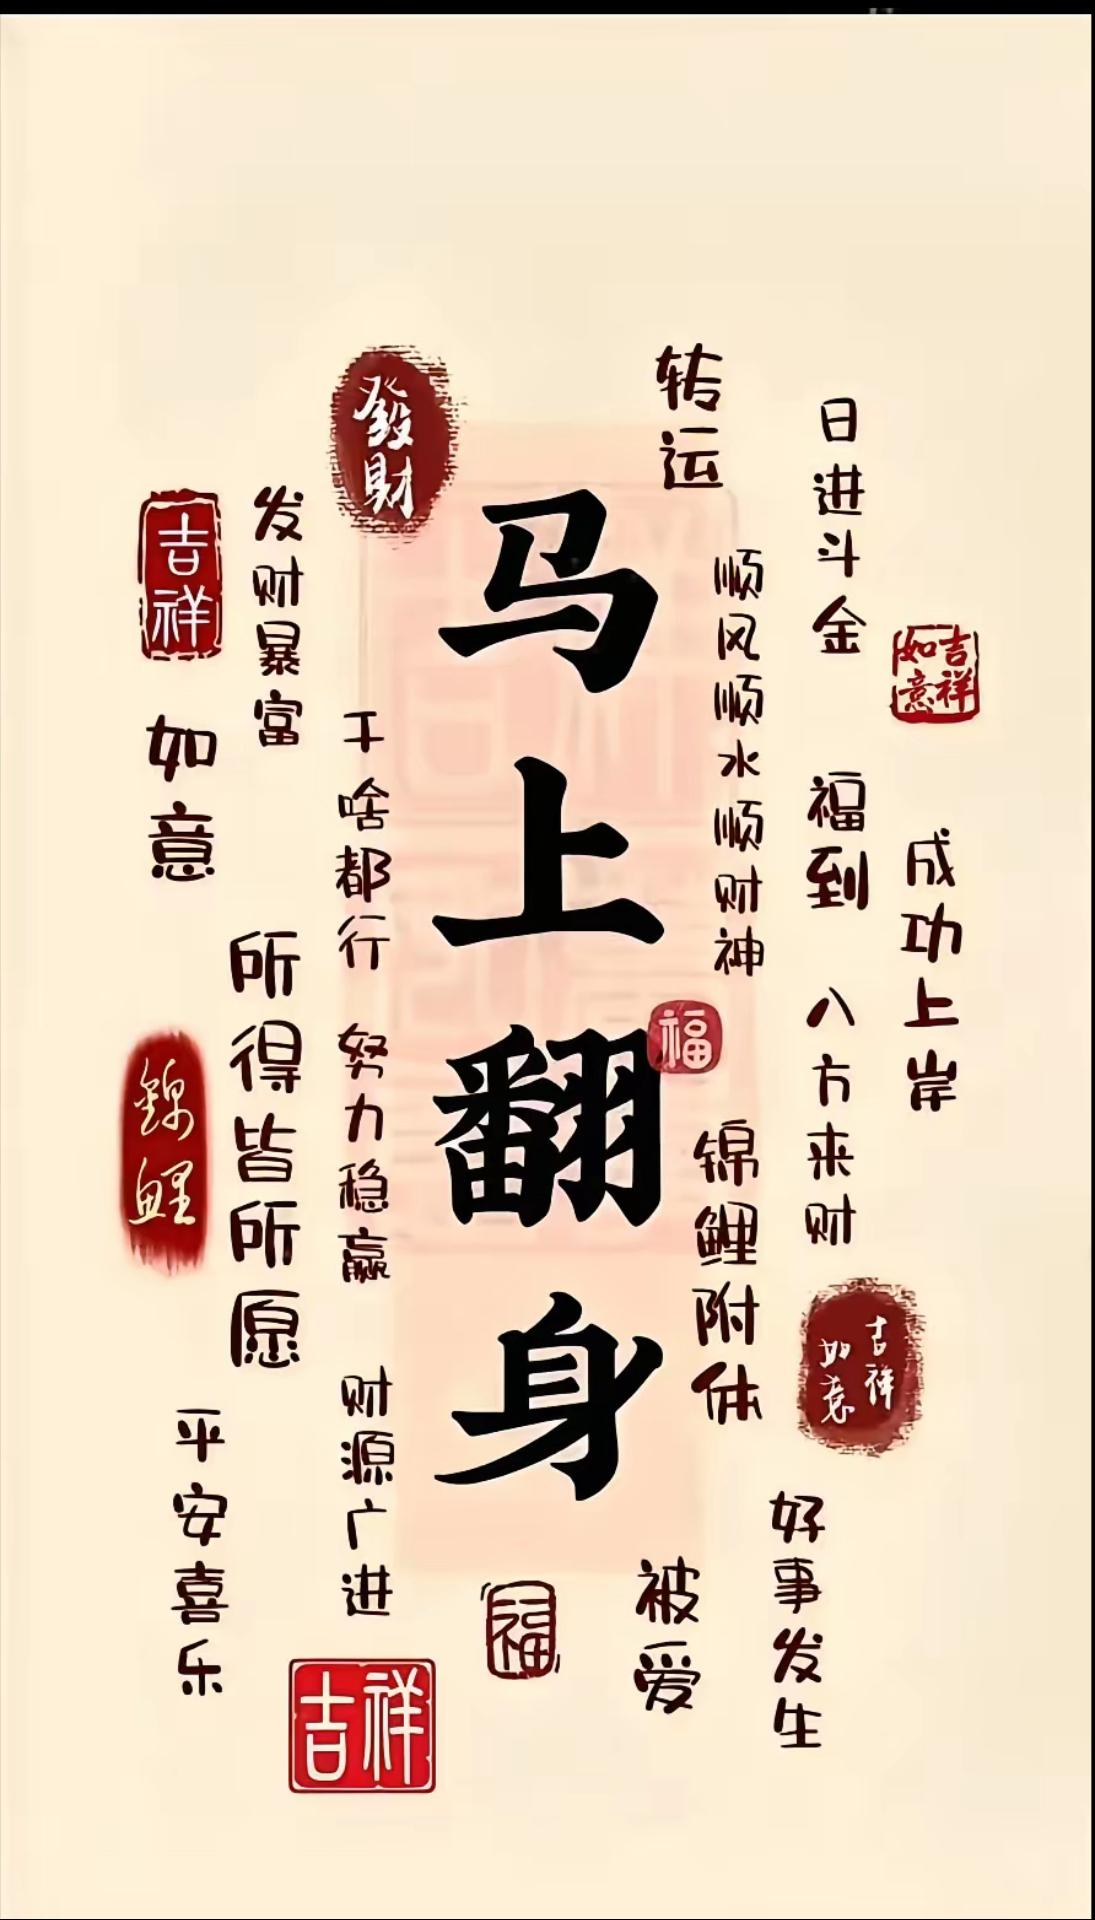 發財
转运
日进斗金
吉祥
发财暴富
马上翻身
顺风顺水顺财神
吉祥如意
如意
干啥都行
福到
成功上岸
所得皆所愿
努力稳赢
福
八方来财
锦鲤
锦鲤附体
吉祥如意
财源广进
平安喜乐
好事发生
被爱
福
吉祥